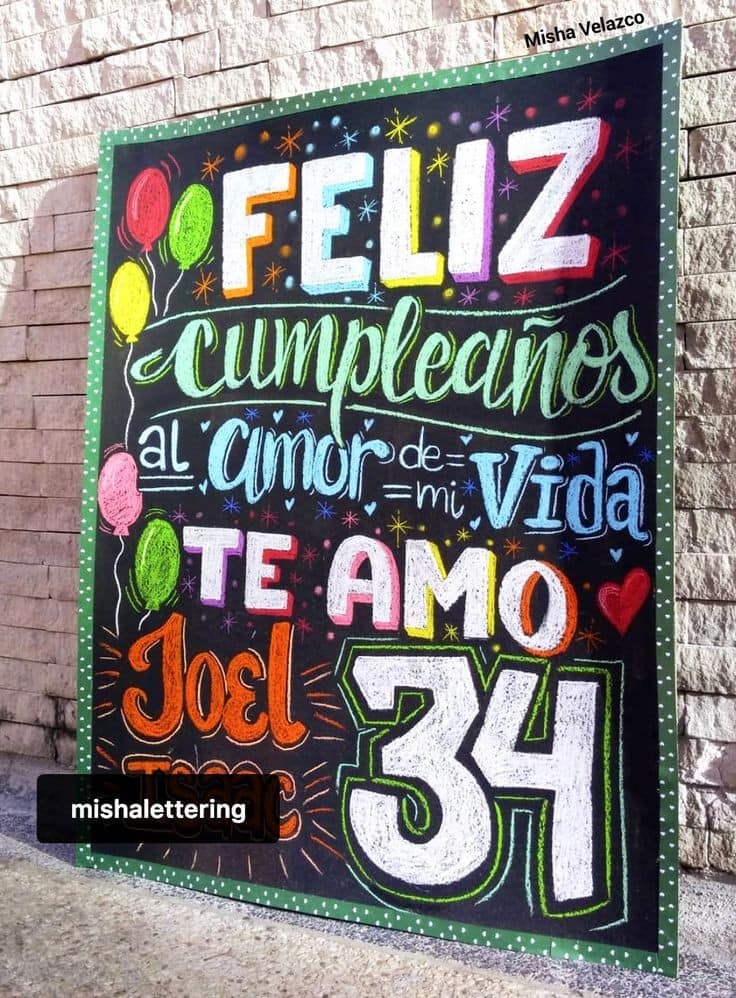 Misha Velazco
FELIZ
cumpleaños
al amor de mi Vida
TE AMO
Joel 34
Isaac
mishalettering